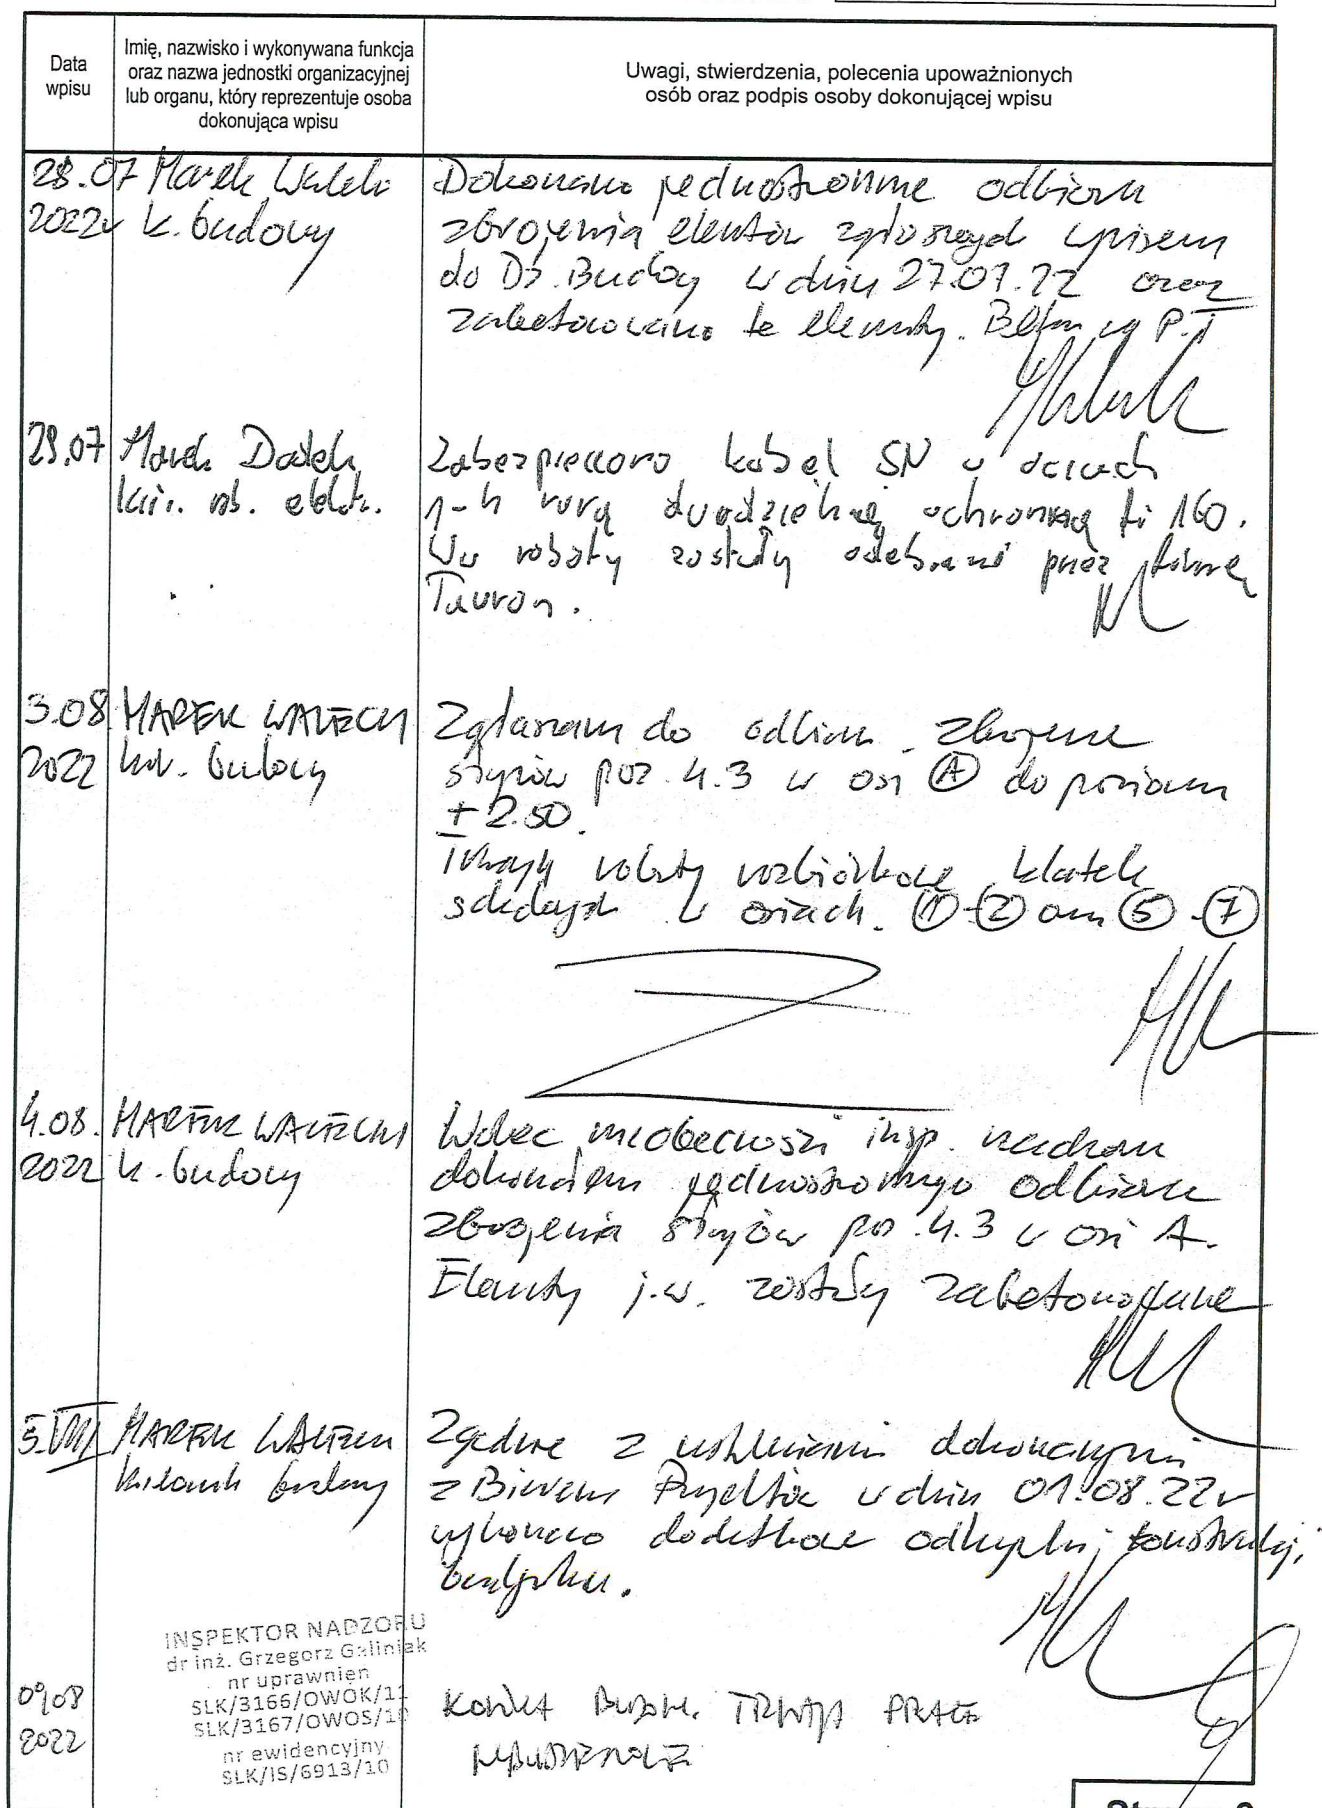 Data
wpisu
Imię, nazwisko i wykonywana funkcja
oraz nazwa jednostki organizacyjnej
lub organu, który reprezentuje osoba
dokonująca wpisu
Uwagi, stwierdzenia, polecenia upoważnionych
osób oraz podpis osoby dokonującej wpisu
28.07
2022r
Marek Walecki
k. budowy
Dokonano jednostronnie odbioru
zbrojenia elentów zgłoszonych wpisem
do Dz. Budowy w dniu 27.07.22 oraz
zabetonowano te elementy. Beton wg P.T
29.07
Marek Dołek
kier. rob. elektr.
Zabezpieczono kabel SN w osiach
1-h rurą dwudzielną ochronną fi 160.
Ww roboty zostały odebrane przez firmę
Tauron.
3.08
2022
MAREK WALECKI
kier. budowy
Zgłaszam do odbioru zbrojenie
słupów poz. 4.3 w osi A do poziomu
± 2.50.
Trwają roboty rozbiórkowe klatek
schodowych w osiach. 1 - 2 oraz 5 - 7
4.08.
2022
MAREK WALECKI
k. budowy
Wobec nieobecności insp. nadzoru
dokonałem jednostronnego odbioru
zbrojenia słupów poz. 4.3 w osi A.
Elenty j.w. zostały zabetonowane
5.VIII
MAREK WALECKI
kierownik budowy
Zgodnie z ustaleniami dokonanymi
z Biurem Projektów w dniu 01.08.22r
wykonano dodatkowe odkrywki konstrukcji
budynku.
INSPEKTOR NADZORU
dr inż. Grzegorz Galiniak
nr uprawnień
SLK/3166/OWOK/11
SLK/3167/OWOS/10
nr ewidencyjny
SLK/IS/6913/10
09.08
2022
TRWAJĄ PRACE